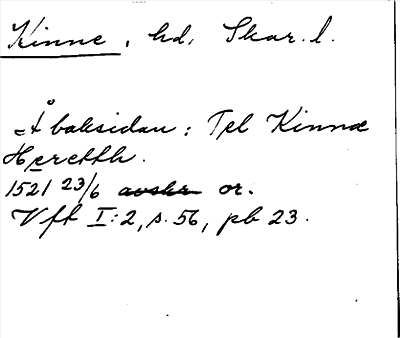 Kinne, hd, Skar. l.
Å baksidan: Tel Kinnæ
Hærethh.
1521 23/6 avskr or.
Vft I:2, s. 56, pb 23.